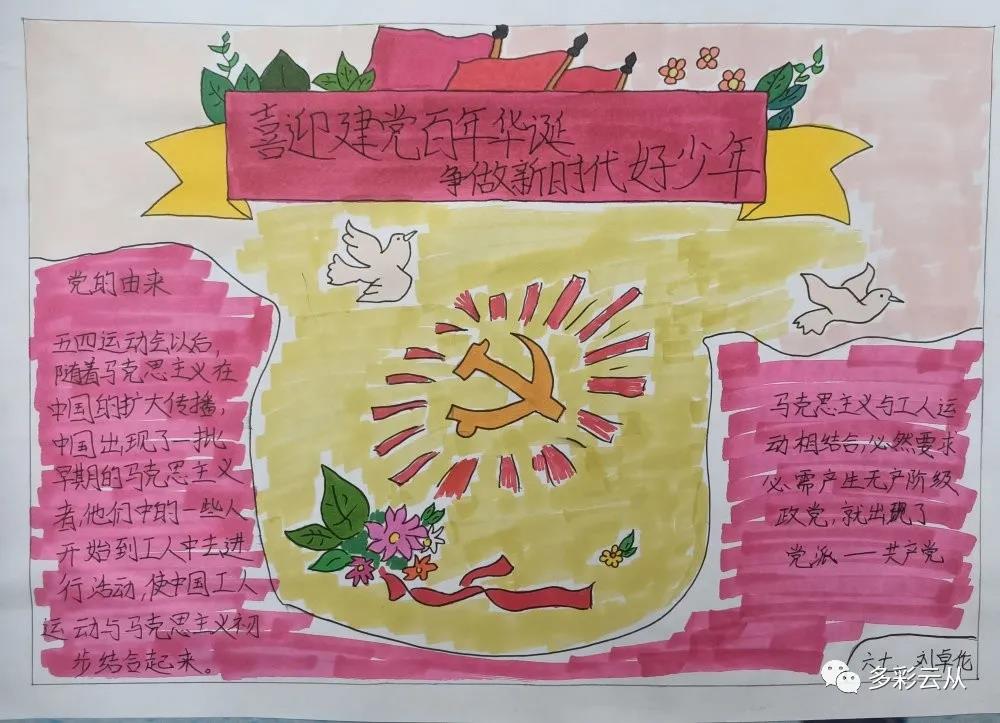 喜迎建党百年华诞
争做新时代好少年
党的由来
五四运动去以后,
随着马克思主义在
中国的扩大传播,
中国出现了一批
早期的马克思主义
者,他们中的一些人
开始到工人中去进
行活动,使中国工人
运动与马克思主义初
步结合起来。
马克思主义与工人运
动相结合,必然要求
必需产生无产阶级
政党,就出现了
党派——共产党
六十 刘卓伦
多彩云从